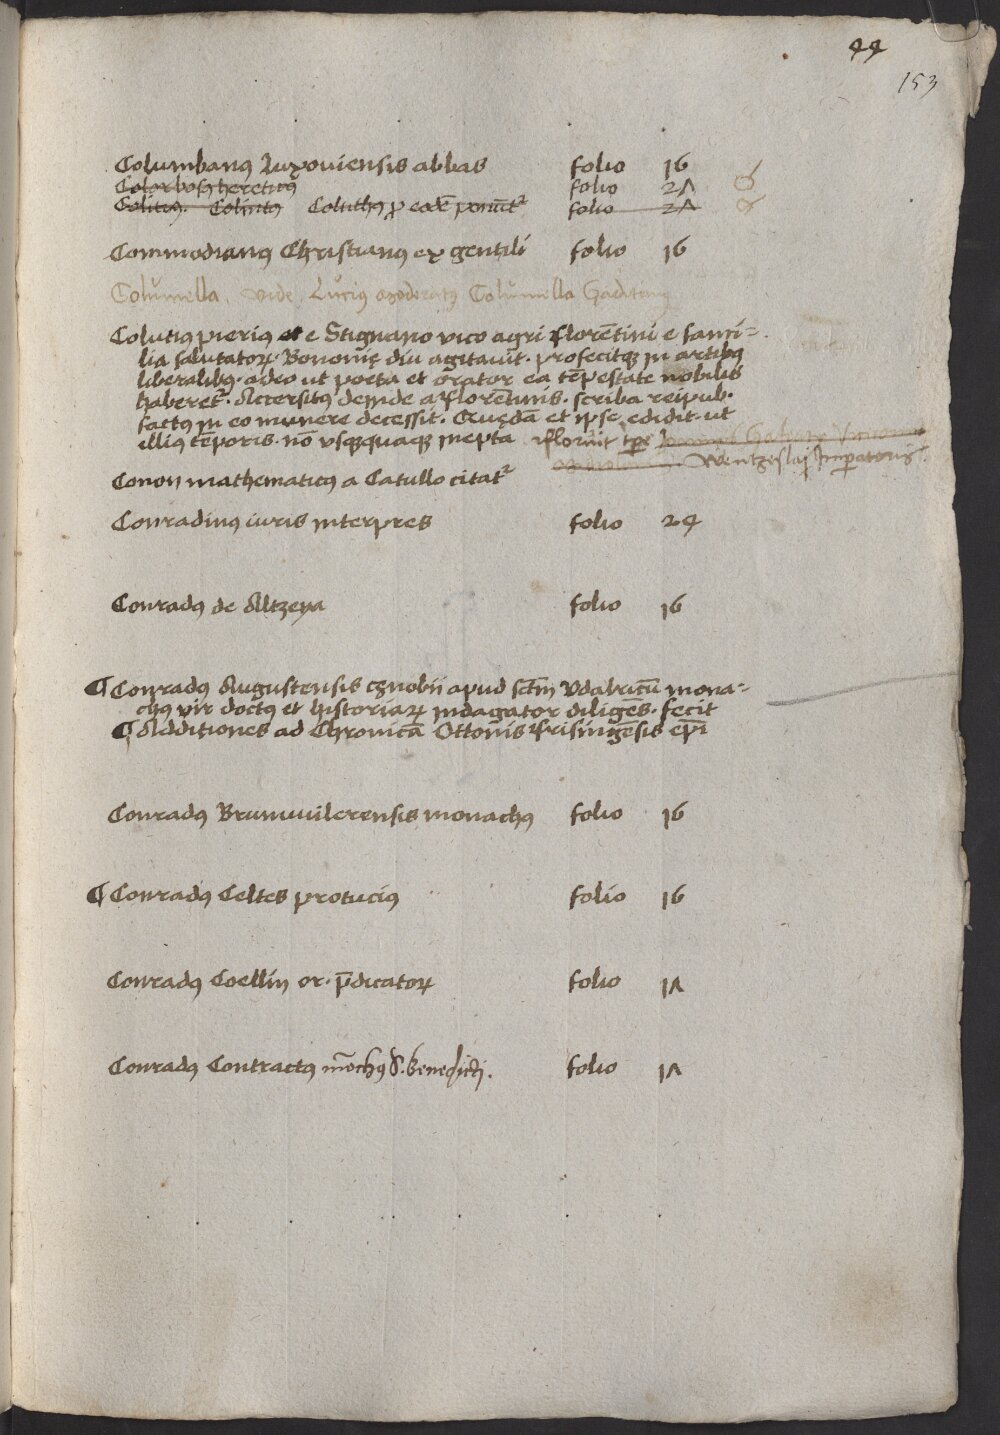 44
153
Columbanꝰ Luxouiensis abbas folio 16
Colorbosꝰ hereticꝰ folio 27
Colitius. Colintꝰ Coluthꝰ ꝓ eodē ponūtᷣ folio 27
Commodianꝰ Christianus ex gentili folio 16
Columella. vide Lucius moderatꝰ Columella Gaditanꝰ
Colutiꝰ pieriꝰ e Stignano vico agri florētini e fami-
lia salutatoꝝ. Bononię diu agitauit. profecitqꝫ in artibꝰ
liberalibꝰ. adeo ut poeta et orator ea tēpestate nobilis
haberetᷣ. Accersitꝰ deinde a florētinis. scriba reipub.
factꝰ in eo munere decessit. Quędā et ipse edidit ut
illiꝰ tēporis. nō vsqꝫquaqꝫ inepta floruit tꝑe
Wentzeslai Imperatoris
Conon mathematicꝰ a Catullo citatᷣ
Conradinꝰ iuris interpres folio 24
Conradꝰ de Altzeya folio 16
¶ Conradꝰ Augustensis cęnobii apud sctm̄ Vdalricū mona-
chꝰ vir doctꝰ et historiaꝝ indagator diligēs. fecit
¶ Additiones ad Chronicā Ottonis Frisingēsis ep̄i
Conradꝰ Brunwilerensis monachꝰ folio 16
¶ Conradꝰ Celtes protuciꝰ folio 16
Conradꝰ Coellin or. p̄dicatoꝝ folio 17
Conradꝰ Contractꝰ mōchꝰ S. benedicti. folio 17